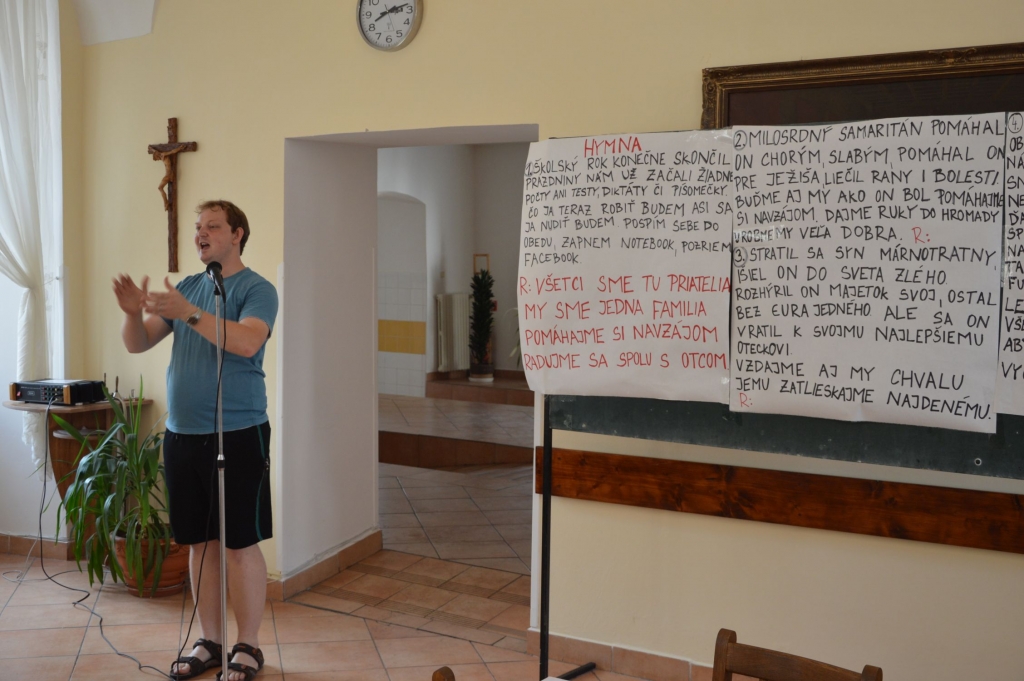 HYMNA
1. ŠKOLSKÝ ROK KONEČNE SKONČIL
PRÁZDNINY NÁM UŽ ZAČALI ŽIADNE
POČTY ANI TESTY, DIKTÁTY ČI PÍSOMEČKY.
ČO JA TERAZ ROBIŤ BUDEM ASI SA
JA NUDIŤ BUDEM. POSPÍM SEBE DO
OBEDU, ZAPNEM NOTEBOOK, POZRIEM
FACEBOOK
R: VŠETCI SME TU PRIATELIA
MY SME JEDNA FAMILIA
POMÁHAJME SI NAVZÁJOM
RADUJME SA SPOLU S OTCOM
2) MILOSRDNÝ SAMARITÁN POMÁHAL
ON CHORÝM, SLABÝM, POMÁHAL ON
PRE JEŽIŠA LIEČIL RANY I BOLESTI,
BUĎME AJ MY AKO ON BOL POMÁHAJME
SI NAVZÁJOM, DAJME RUKY DO HROMADY
UROBME MY VEĽA DOBRA. R:
3.) STRATIL SA SYN MÁRNOTRATNÝ,
IŠIEL ON DO SVETA ZLÉHO.
ROZHÝRIL ON MAJETOK SVOJ, OSTAL
BEZ EURA JEDNÉHO ALE SA ON
VRÁTIL K SVOJMU NAJLEPŠIEMU
OTECKOVI.
VZDAJME AJ MY CHVÁLU
JEMU ZATLIESKAJME NAJDENÉMU.
R: